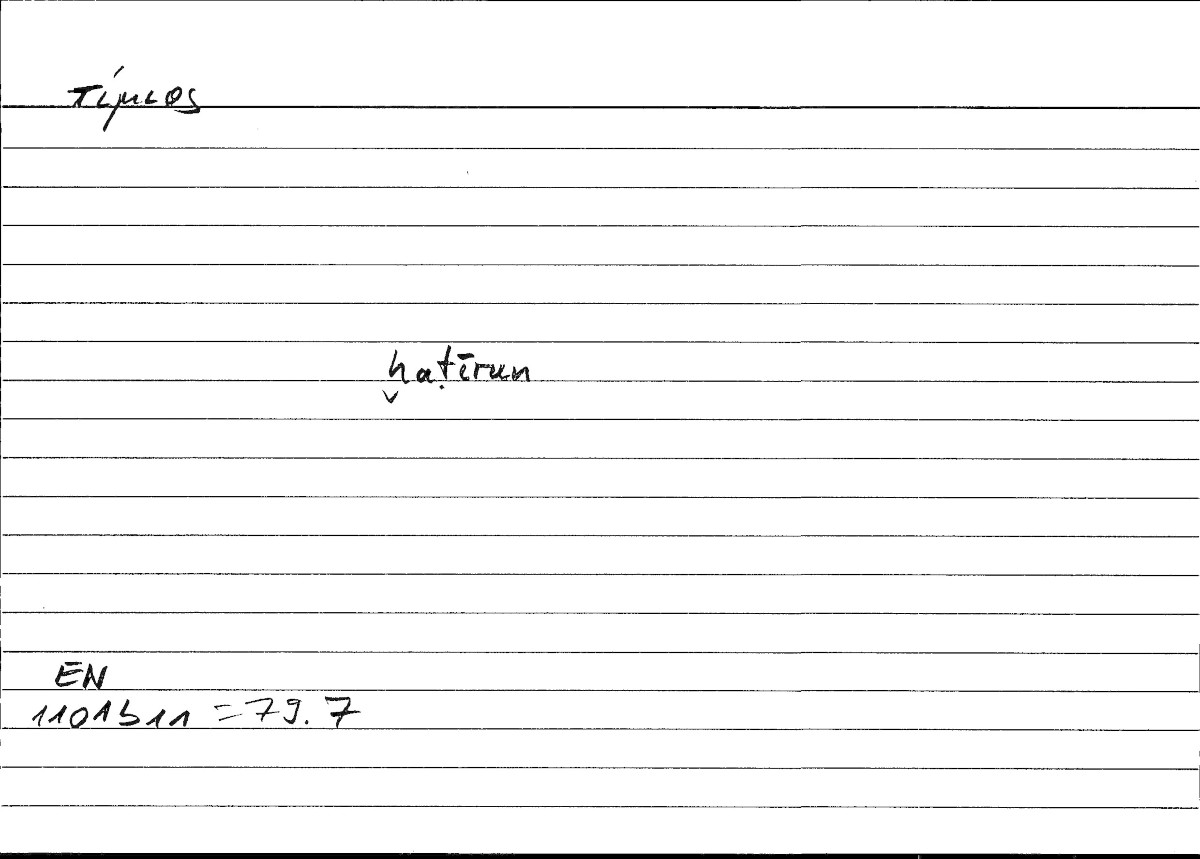 τίμιος
ḫaṭīrun
EN
1101b11 = 79.7